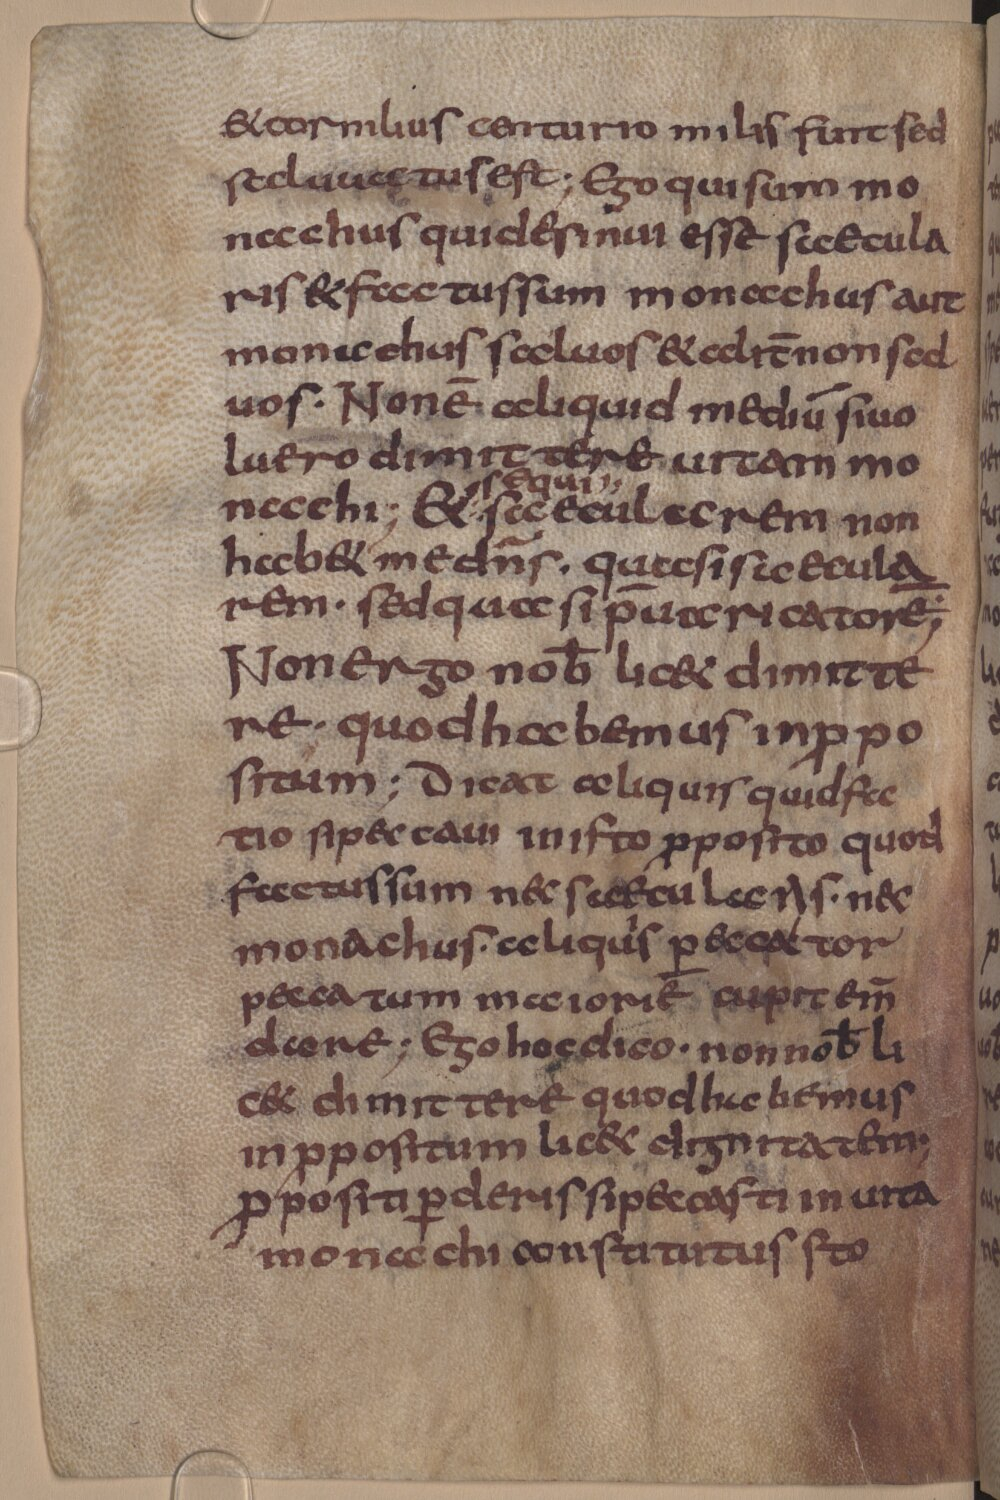 & cornilius centurio milis fuit sed
saluatus est; Ego qui sum mo
nachus qui desinui esse saecula
ris & factus sum monachus aut
monachus saluos & alit̄ non sal
uos. Non ē aliquid mediū si uo
luero dimittere uitam mo
nachi; Et sequi saecularem non
hab& me dn̄s. quasi saecula
rem. sed quasi p̄uaricatorē;
Non ergo nob̄ lic& dimitte
re. quod habemus in ppo
situm; Dicat aliquis quid fa
tio si peccaui in isto pposito quod
factus sum nec saecularis. nec
monachus. aliquis peccator
peccatum maiorē cupit em̄
dare; Ego hoc dico. non nob̄ li
c& dimittere quod habemus
in ppositum lic& dignitatem;
ppositi pderis si peccasti in uita
monachi constitutus sto